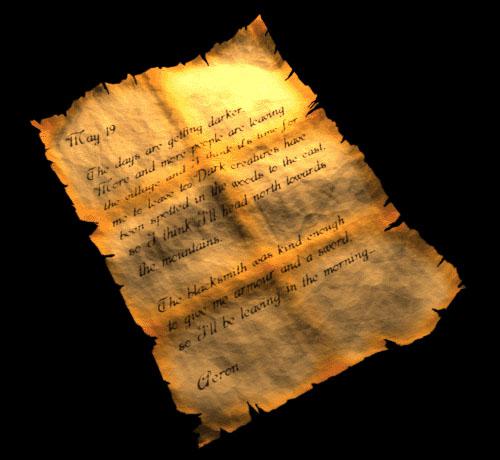 May 19
The days are getting darker.
More and more people are leaving
the village and I think it's time for
me to leave too. Dark creatures have
been spotted in the woods to the east.
so I think I'll head north towards
the mountains.
The blacksmith was kind enough
to give me armour and a sword,
so I'll be leaving in the morning...
Aeron